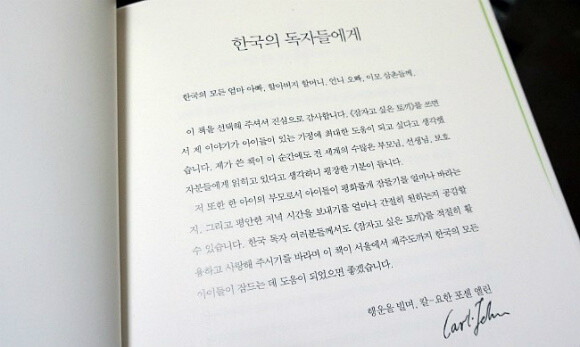 한국의 독자들에게
한국의 모든 엄마 아빠, 할아버지 할머니, 언니 오빠, 이모 삼촌들께.
이 책을 선택해 주셔서 진심으로 감사합니다. 《잠자고 싶은 토끼》를 쓰면
서 제 이야기가 아이들이 있는 가정에 최대한 도움이 되고 싶다고 생각했
습니다. 제가 쓴 책이 이 순간에도 전 세계의 수많은 부모님, 선생님, 보호
자분들에게 읽히고 있다고 생각하니 굉장한 기분이 듭니다.
저 또한 한 아이의 부모로서 아이들이 평화롭게 잠들기를 얼마나 바라는
지, 그리고 평안한 저녁 시간을 보내기를 얼마나 간절히 원하는지 공감할
수 있습니다. 한국 독자 여러분들께서도 《잠자고 싶은 토끼》를 적절히 활
용하고 사랑해 주시기를 바라며 이 책이 서울에서 제주도까지 한국의 모든
아이들이 잠드는 데 도움이 되었으면 좋겠습니다.
행운을 빌며, 칼-요한 포셴 엘린
Carl-John